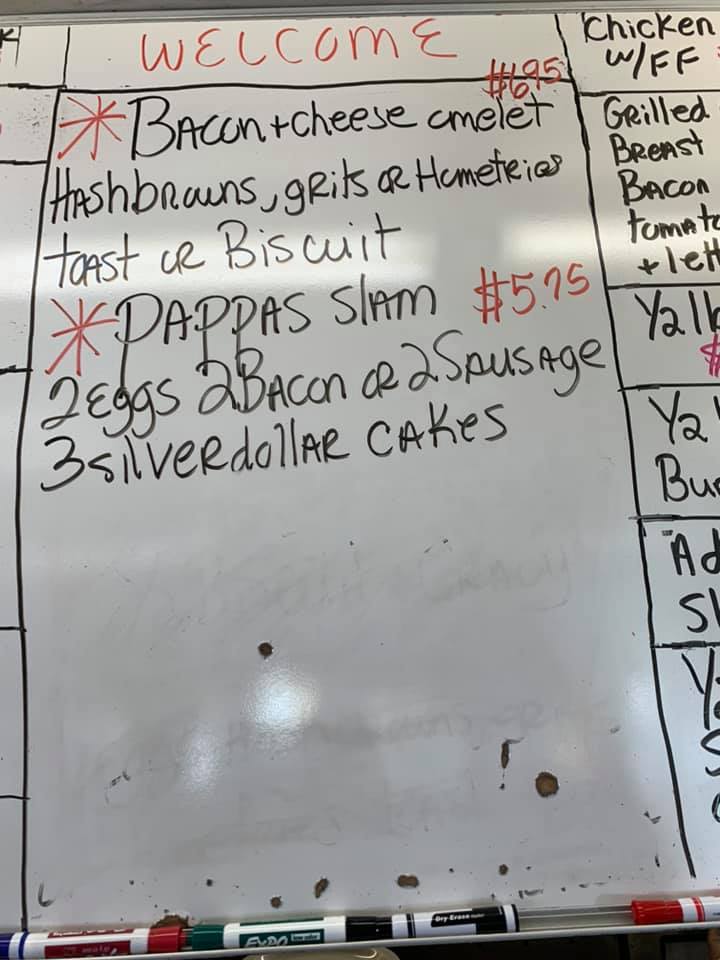 WELCOME
$6.95
* Bacon + cheese omelet
Hashbrowns, grits or Homefries
toast or Biscuit
* PAPPAS Slam $5.75
2 Eggs 2 Bacon or 2 Sausage
3 silverdollar cakes
Chicken
W/FF
Grilled
Breast
Bacon
+ lett
Y2 lb
$
Y2
Bur
Ad
Sl
EXPO
Dry-Erase